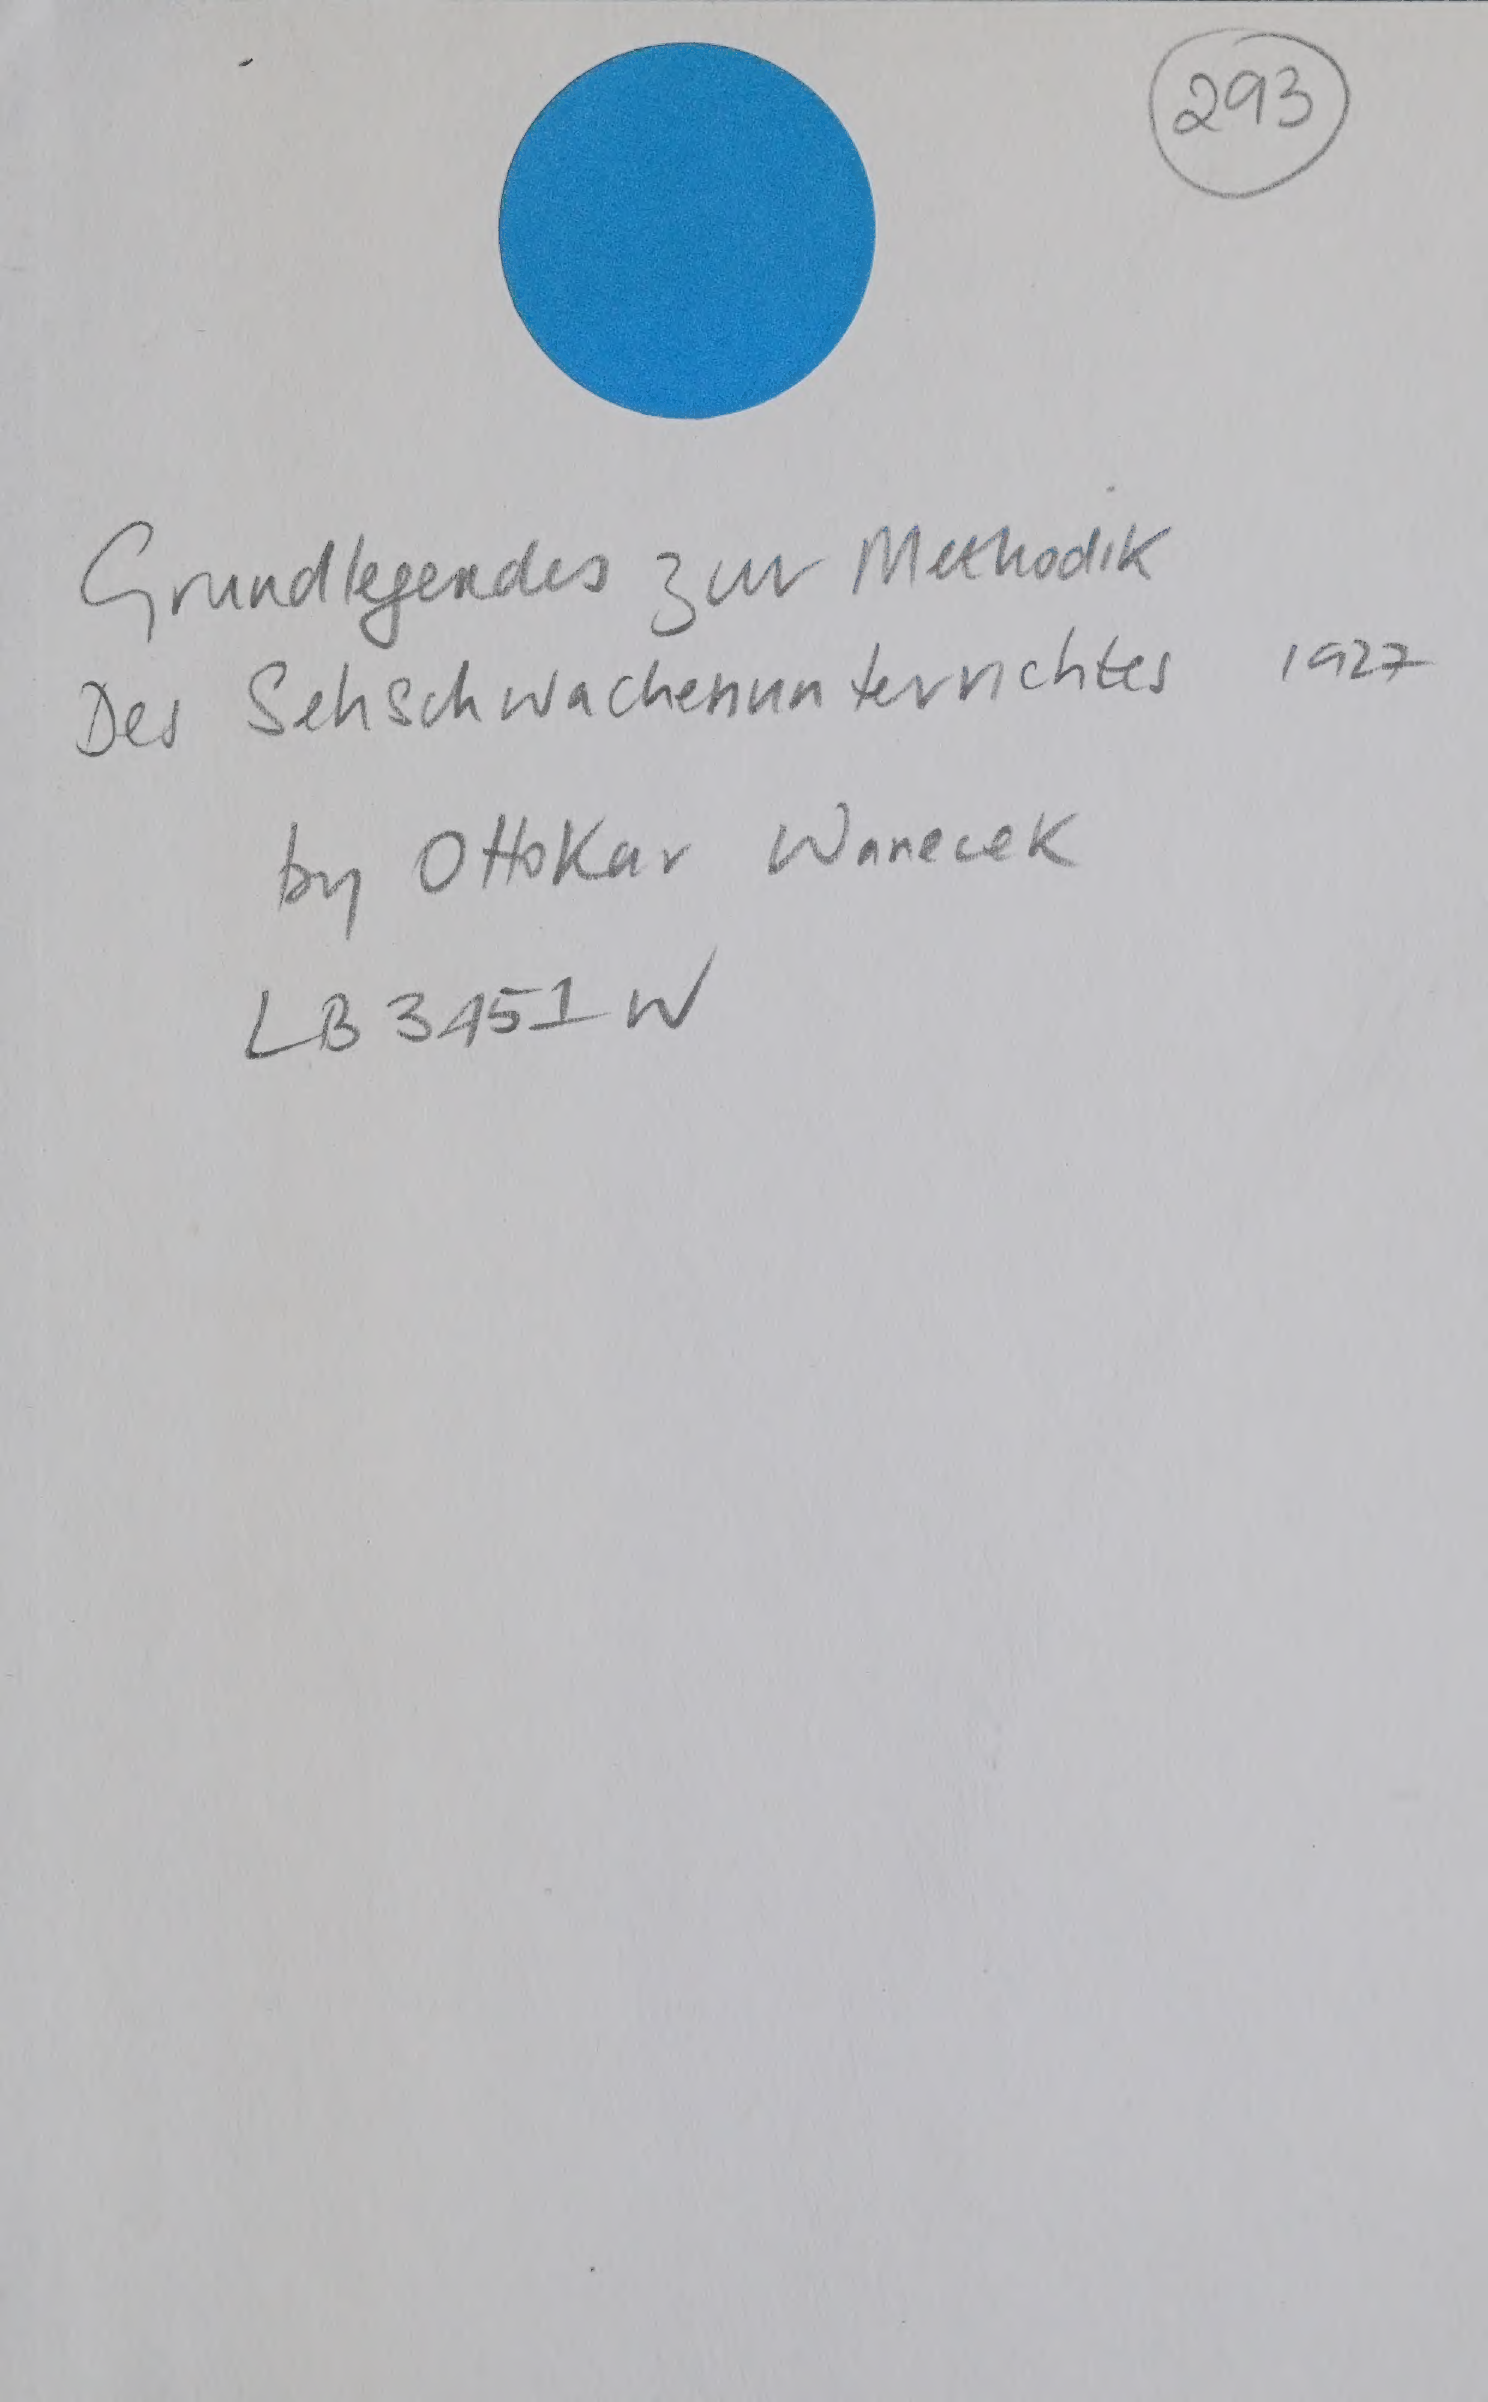 293
Grundlegendes zur Methodik
Des Sehschwachenunterrichtes 1927
by Ottokar Wanecek
LB 3451 W